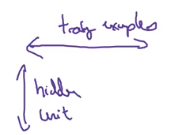 training examples
hidden
unit